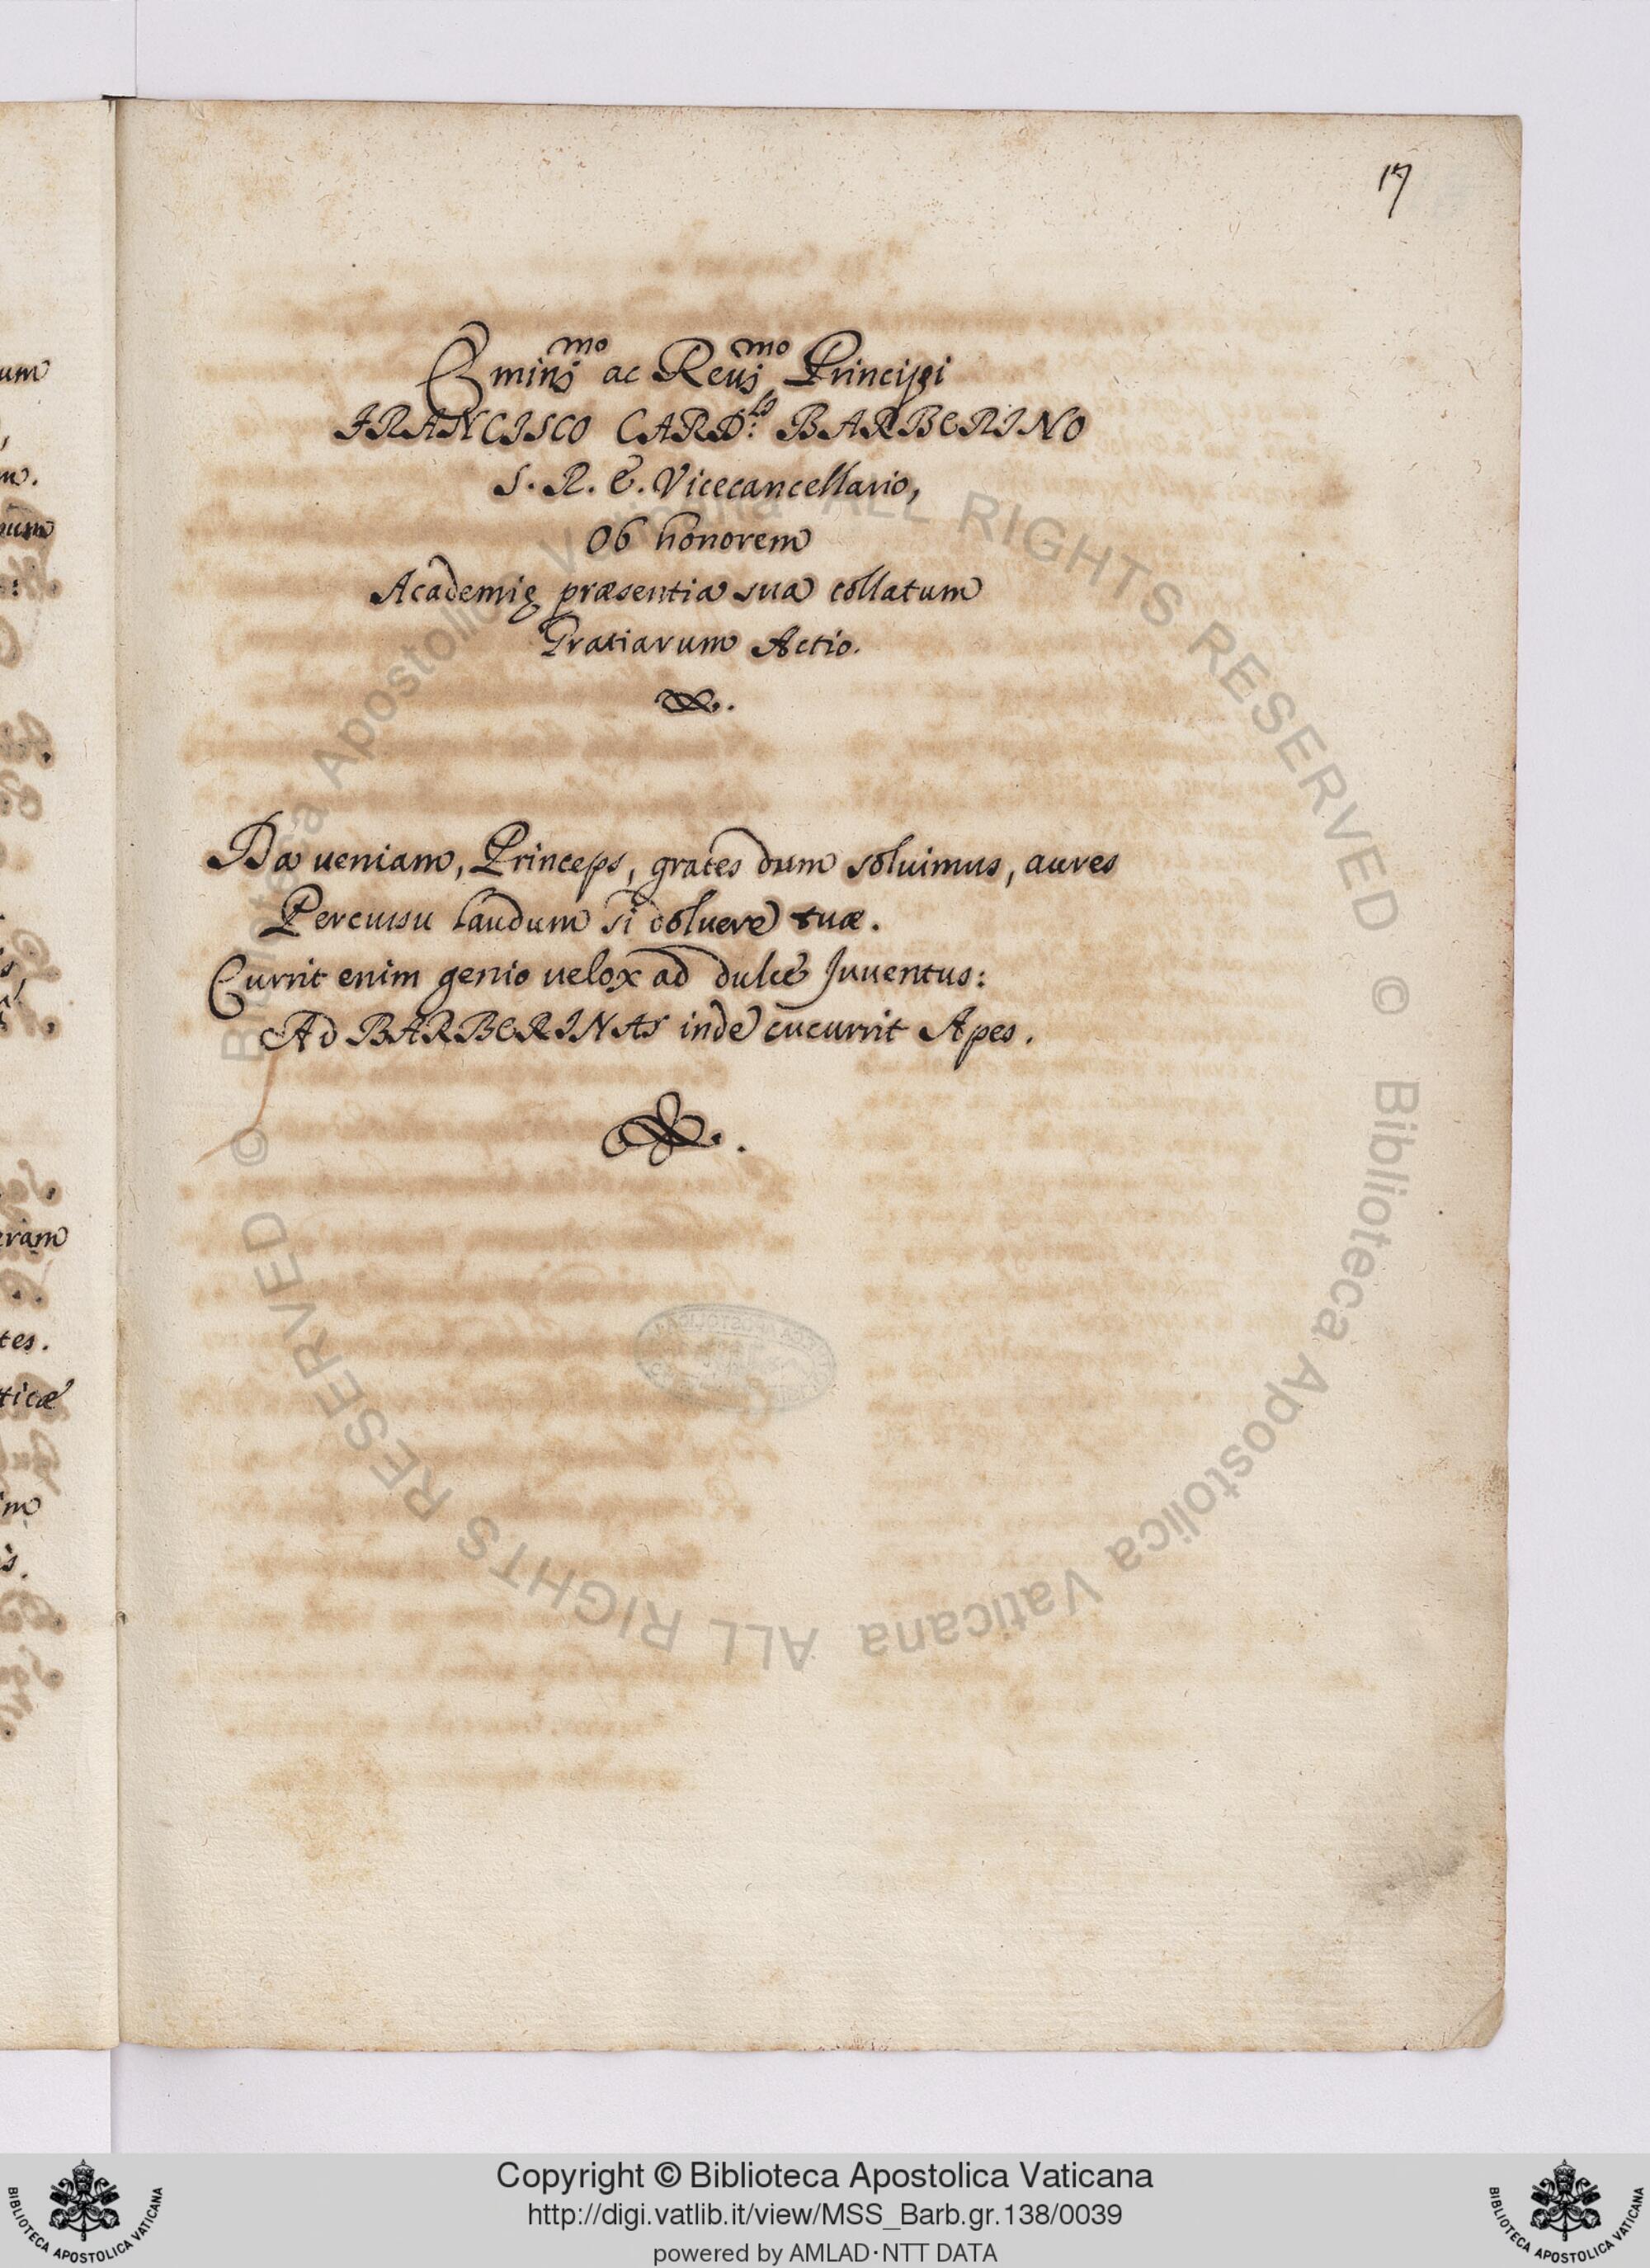 17
Emin̄j^mo ac Reuj^mo Principi
FRANCISCO CARD:^lo BARBERINO
S. R. E. Vicecancellario,
Ob honorem
Academię præsentia sua collatum
Gratiarum Actio.
Da ueniam, Princeps, grates dum soluimus, aures
Percussu laudum si doluere tuæ.
Currit enim genio uelox ad dulce Juuentus:
Ad BARBERINAS inde cucurrit Apes.
um
m.
:
eram
tes.
ticæ
im
is.
© Biblioteca Apostolica Vaticana ALL RIGHTS RESERVED © Biblioteca Apostolica Vaticana ALL RIGHTS RESERVED
Copyright © Biblioteca Apostolica Vaticana
http://digi.vatlib.it/view/MSS_Barb.gr.138/0039
powered by AMLAD·NTT DATA
BIBLIOTECA APOSTOLICA VATICANA
BIBLIOTECA APOSTOLICA VATICANA